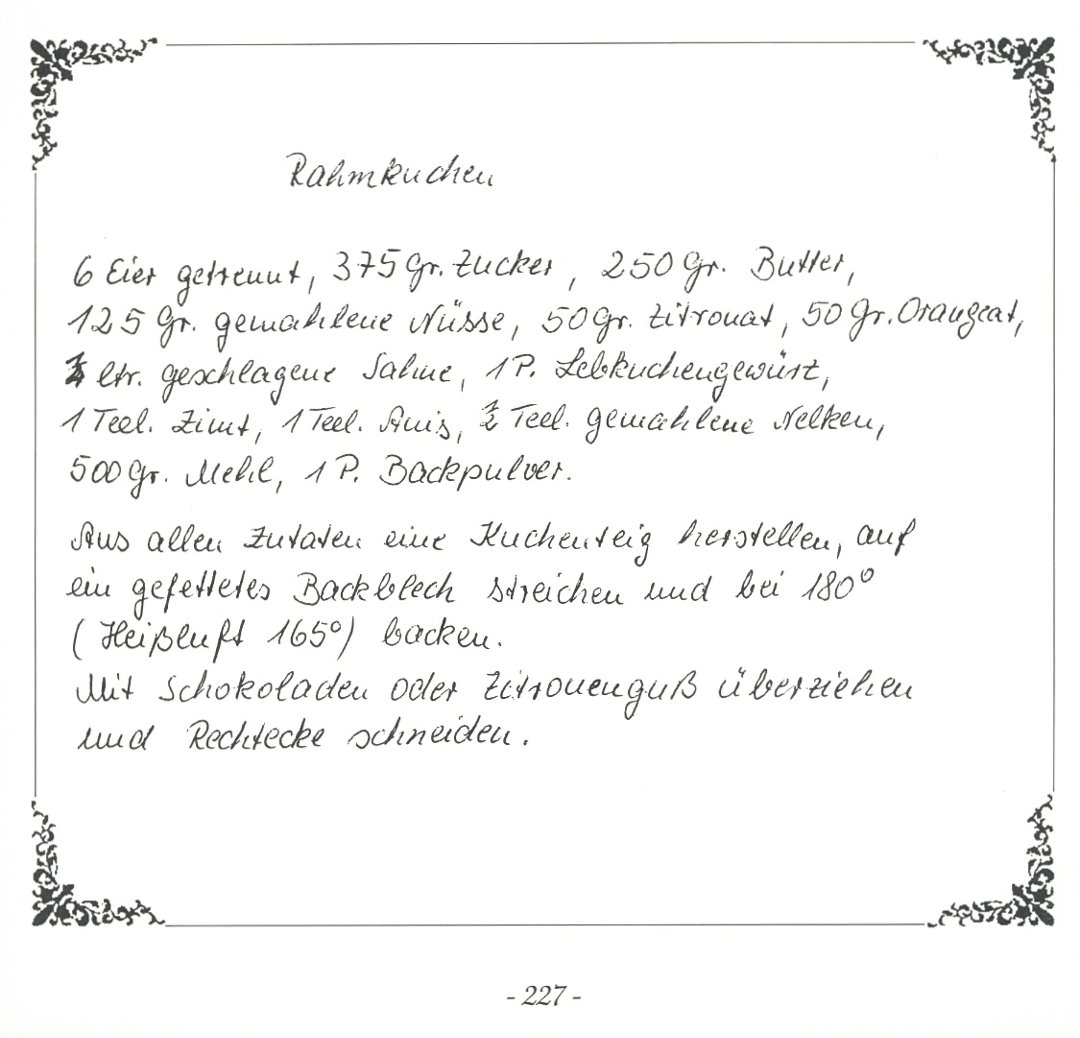 Rahmkuchen
6 Eier getrennt, 375 Gr. Zucker, 250 Gr. Butter,
125 Gr. gemahlene Nüsse, 50 Gr. Zitronat, 50 Gr. Orangeat,
ltr. geschlagene Sahne, 1 P. Lebkuchengewürz,
1 Teel. Zimt, 1 Teel. Anis, ½ Teel. gemahlene Nelken,
500 Gr. Mehl, 1 P. Backpulver.
Aus allen Zutaten eine Kuchenteig herstellen, auf
ein gefettetes Backblech streichen und bei 180°
(Heißluft 165°) backen.
Mit Schokoladen oder Zitronenguß überziehen
und Rechtecke schneiden.
- 227 -